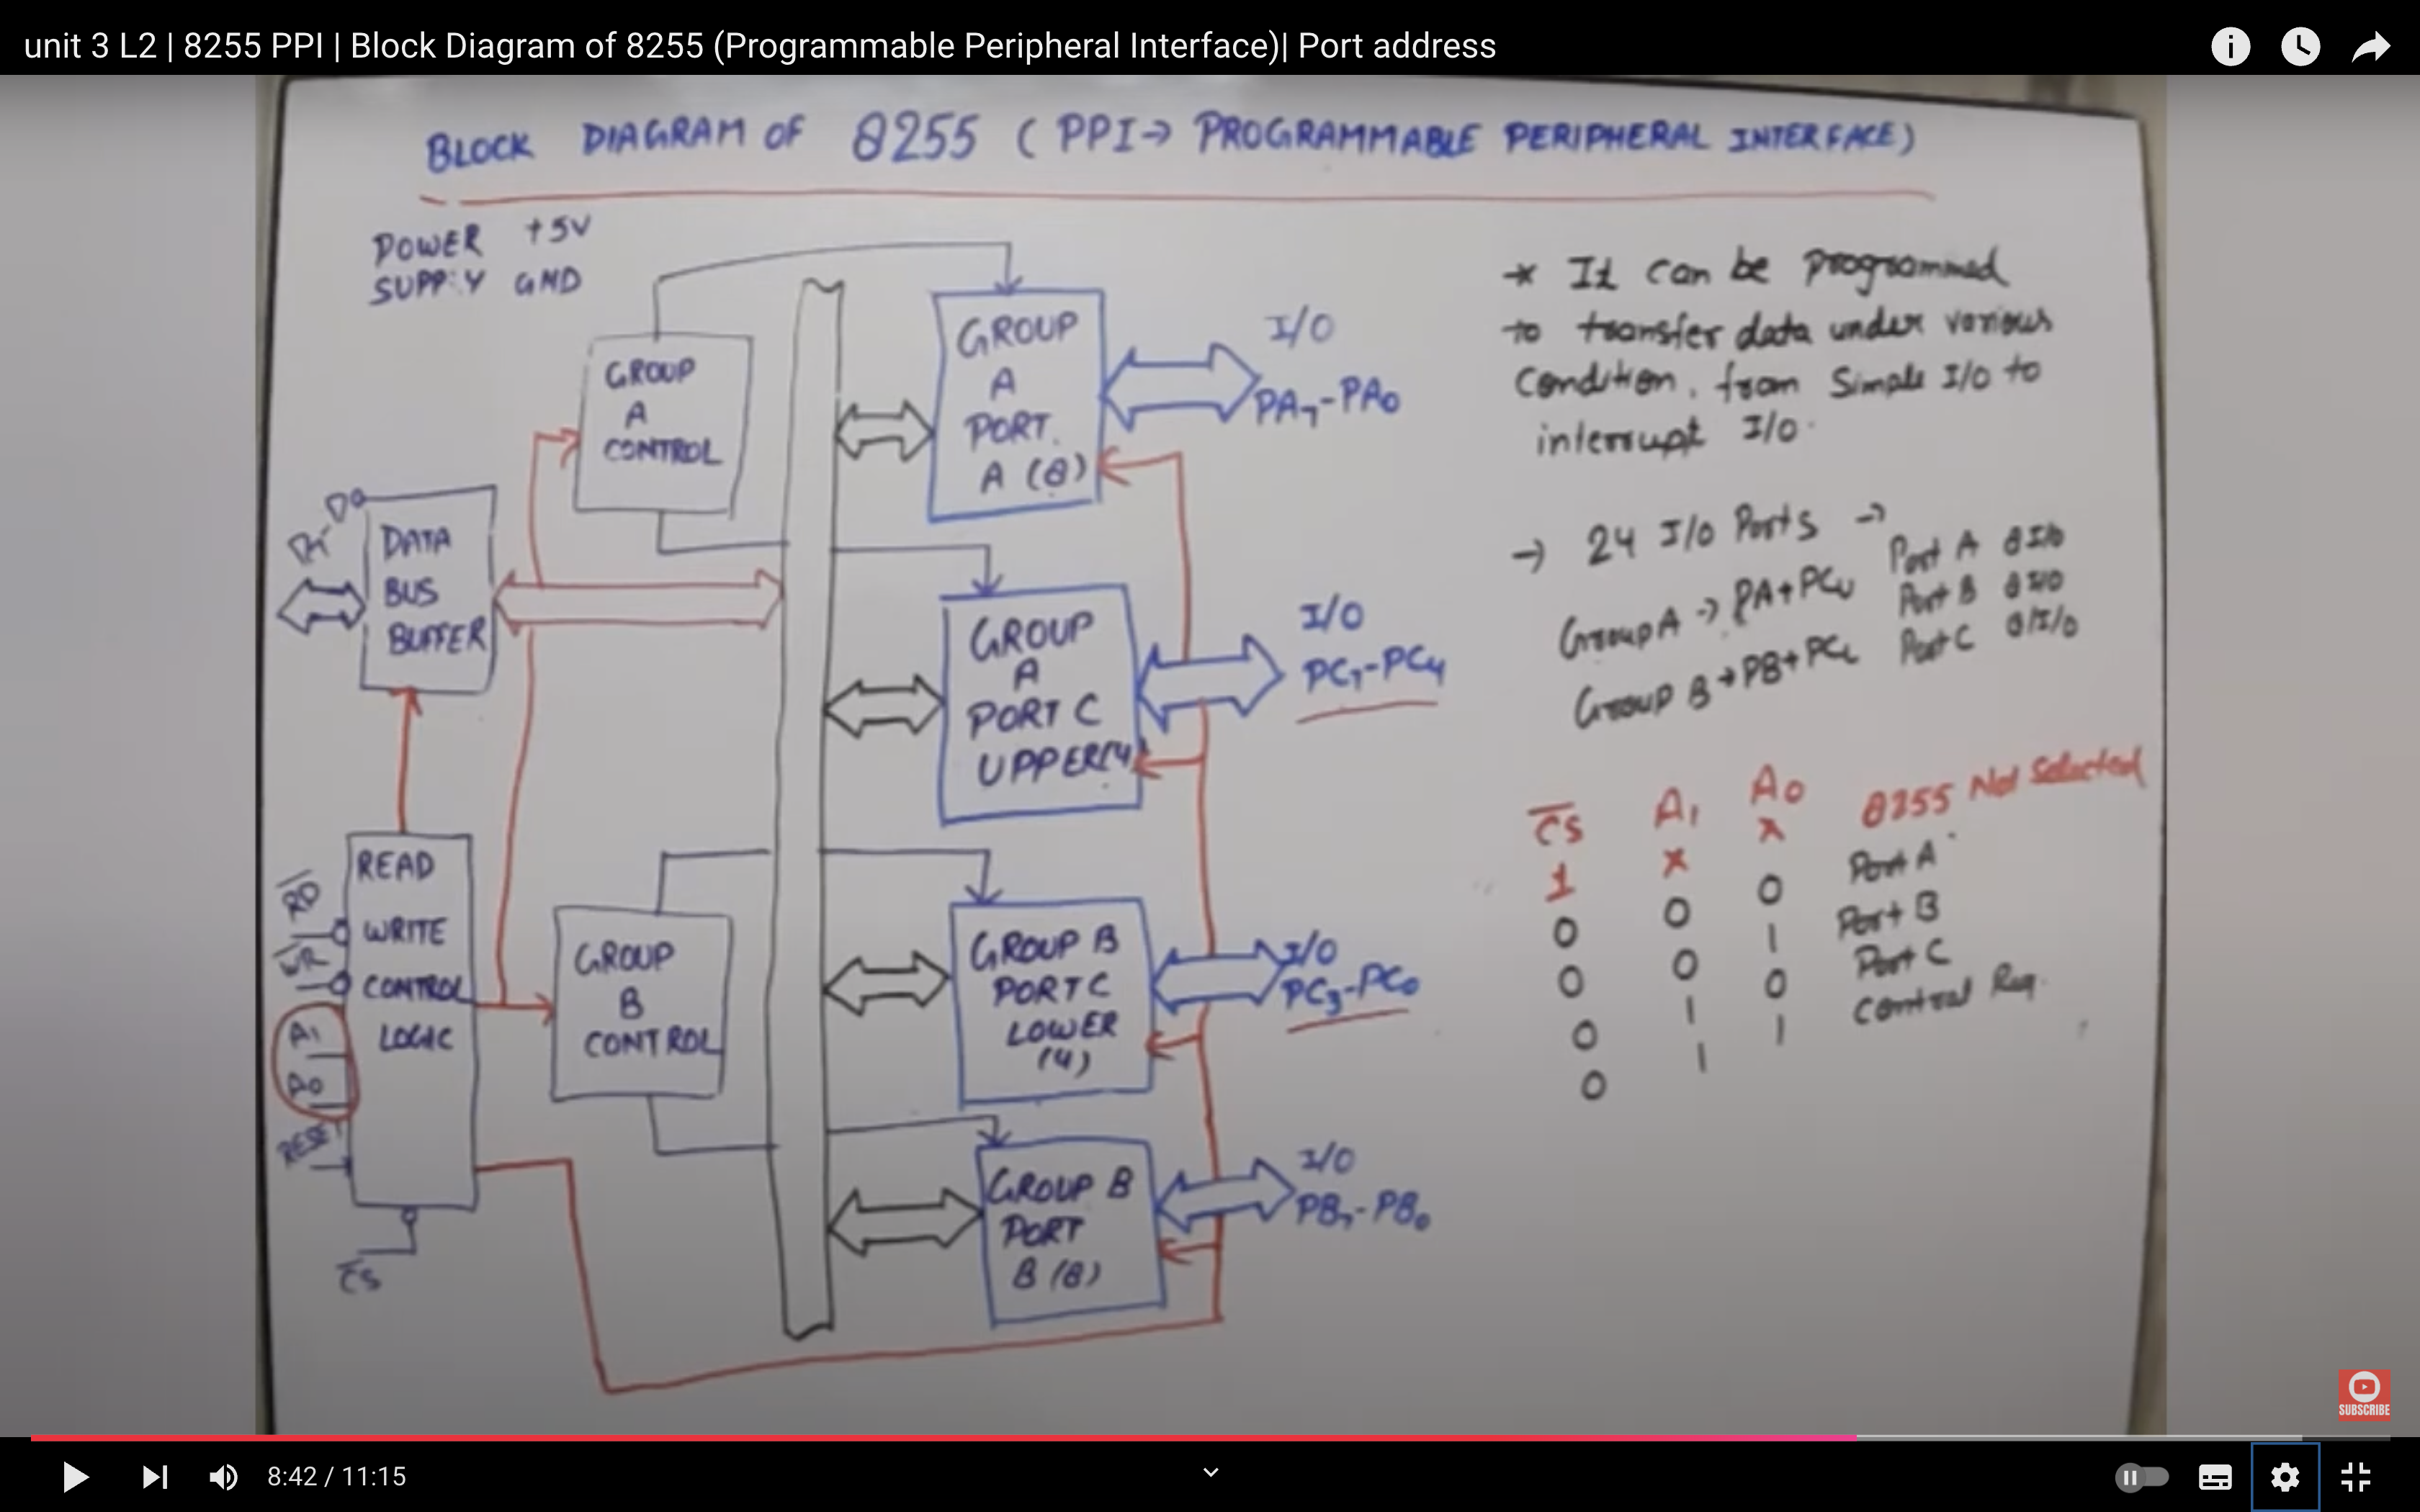 unit 3 L2 | 8255 PPI | Block Diagram of 8255 (Programmable Peripheral Interface)| Port address
BLOCK DIAGRAM OF 8255 ( PPI→ PROGRAMMABLE PERIPHERAL INTERFACE)
POWER +5V
SUPPLY GND
GROUP
A
CONTROL
GROUP
A
PORT.
A (8)
I/O
PA7-PA0
D7-D0
DATA
BUS
BUFFER
GROUP
A
PORT C
UPPER(4)
I/O
PC7-PC4
READ
WRITE
CONTROL
LOGIC
RD
WR
A1
A0
RESET
CS
GROUP
B
CONTROL
GROUP B
PORT C
LOWER
(4)
I/O
PC3-PC0
GROUP B
PORT
B (8)
I/O
PB7-PB0
* It can be programmed
to transfer data under various
Condition, from Simple I/O to
interrupt I/O.
→ 24 I/O Ports →
Port A 8 I/O
Port B 8 I/O
Port C 8/I/O
Group A → PA+PCU
Group B → PB+PCL
C̅S̅ A1 A0
1 x x 8255 Not Selected
0 0 0 Port A
0 0 1 Port B
0 1 0 Port C
0 1 1 Control Reg.
SUBSCRIBE
8:42 / 11:15